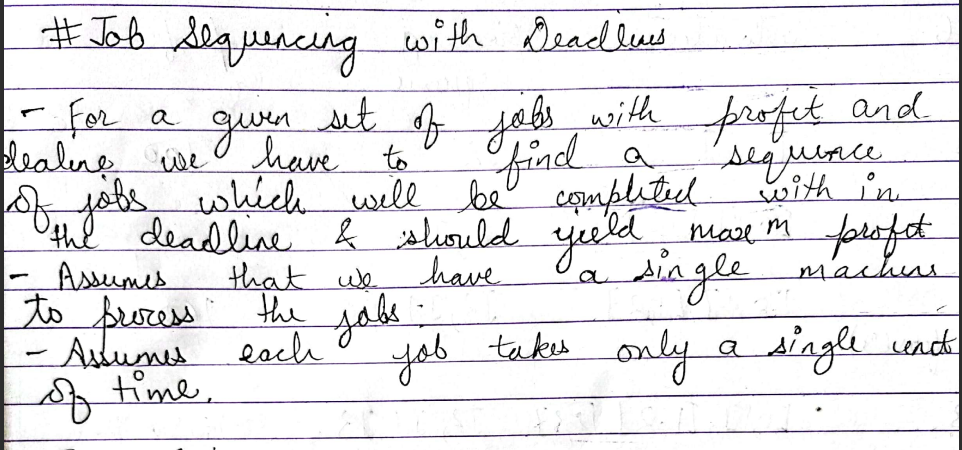 # Job Sequencing with Deadlines
- For a given set of jobs with profit and
dealine we have to find a sequence
of jobs which will be completed with in
the deadline & should yield maxm profit
- Assumes that we have a single machine
to process the jobs.
- Assumes each job takes only a single unit
of time.